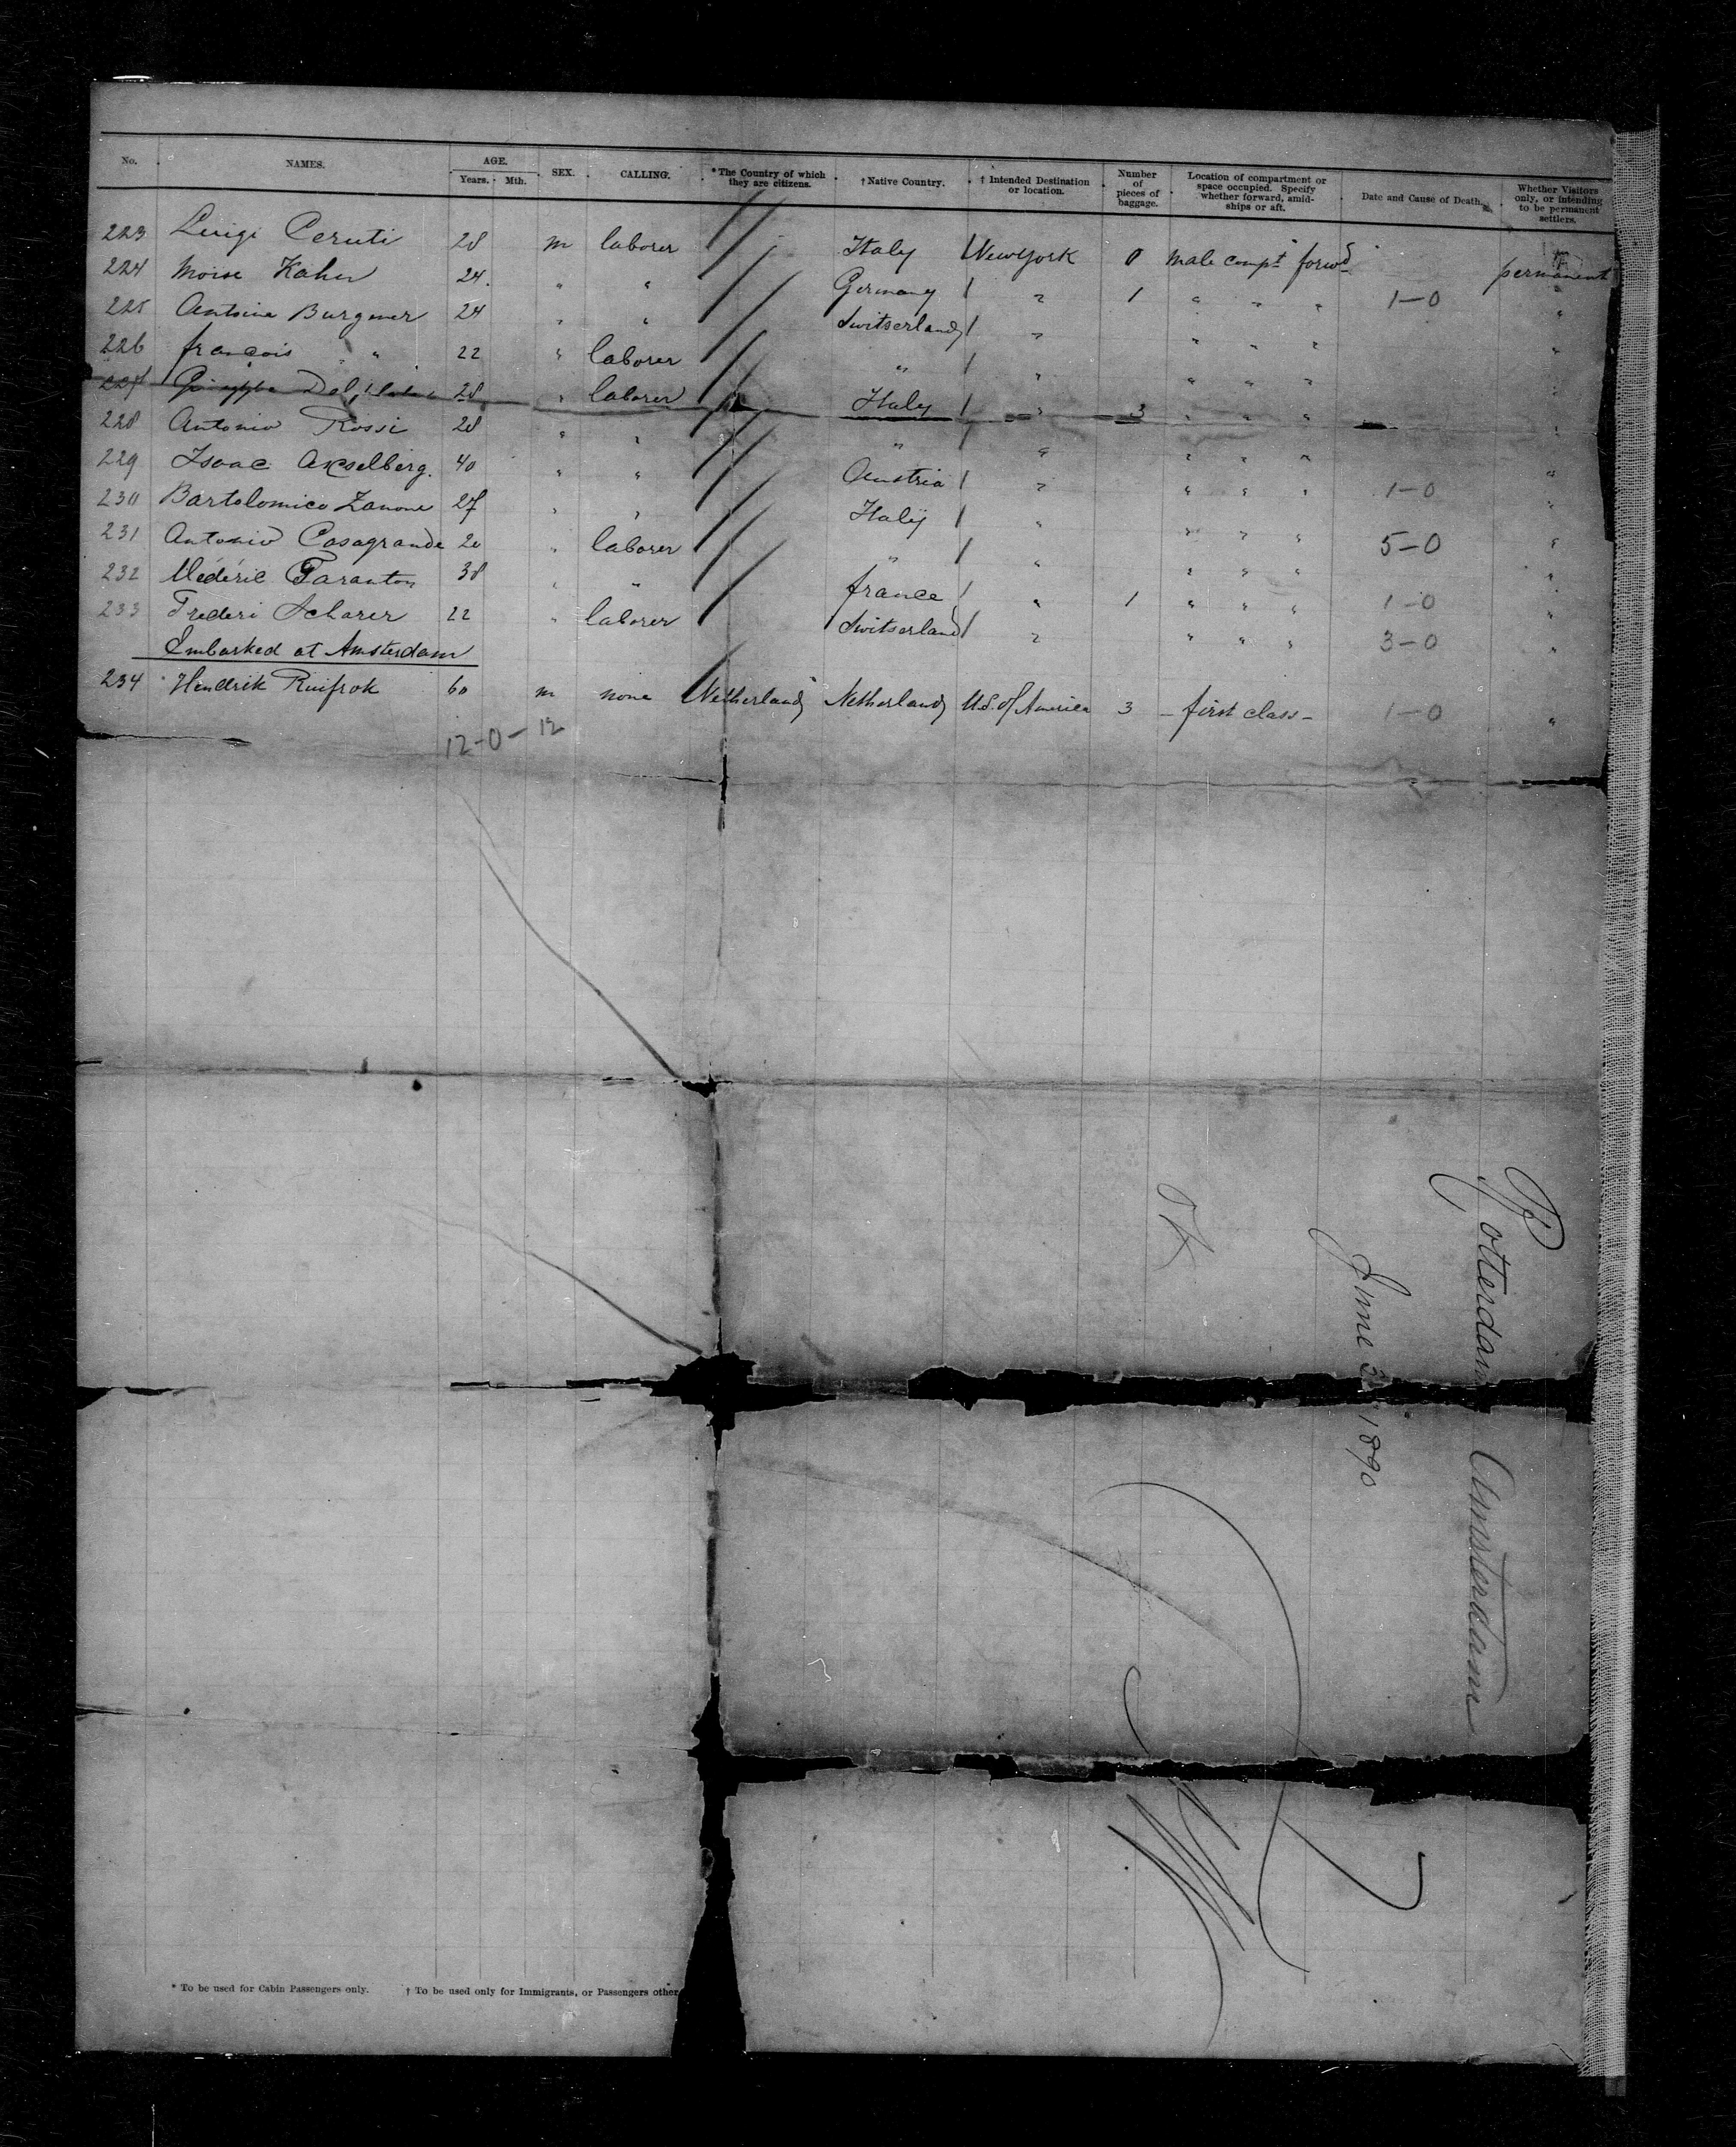 No. NAMES. AGE. Years. Mth. SEX. CALLING. * The Country of which they are citizens. † Native Country. † Intended Destination or location. Number of pieces of baggage. Location of compartment or space occupied. Specify whether forward, amidships or aft. Date and Cause of Death. Whether Visitors only, or intending to be permanent settlers.
223 Luigi Ceruti 28 m laborer Italy New York 0 male compt forwd permanent
224 Moise Kahn 24. " " Germany / " 1 " " " 1-0 "
225 Antoine Burgener 24 " " Switserland / " " " " "
226 françois " " 22 " laborer " / " " " " "
227 28 " laborer Italy / " 3 " " " "
228 Antonio Rossi 28 " " " / " " " "
229 Isaac Akselberg. 40 " " Austria / " " " " 1-0 "
230 Bartolomico Zanone 27 " " Italy / " " " " 5-0 "
231 Antonio Casagrande 20 " laborer " / " " " " "
232 Mederic Taranton 38 " " france / " 1 " " " 1-0 "
233 Frederi Scharer 22 " laborer Switserland / " " " " 3-0 "
Embarked at Amsterdam
234 Hendrik Ruifrok 60 m none Netherlands Netherlands U.S. of America 3 - first class - 1-0 "
12-0-12
Rotterdam Amsterdam
June 1890
OK
* To be used for Cabin Passengers only. † To be used only for Immigrants, or Passengers other